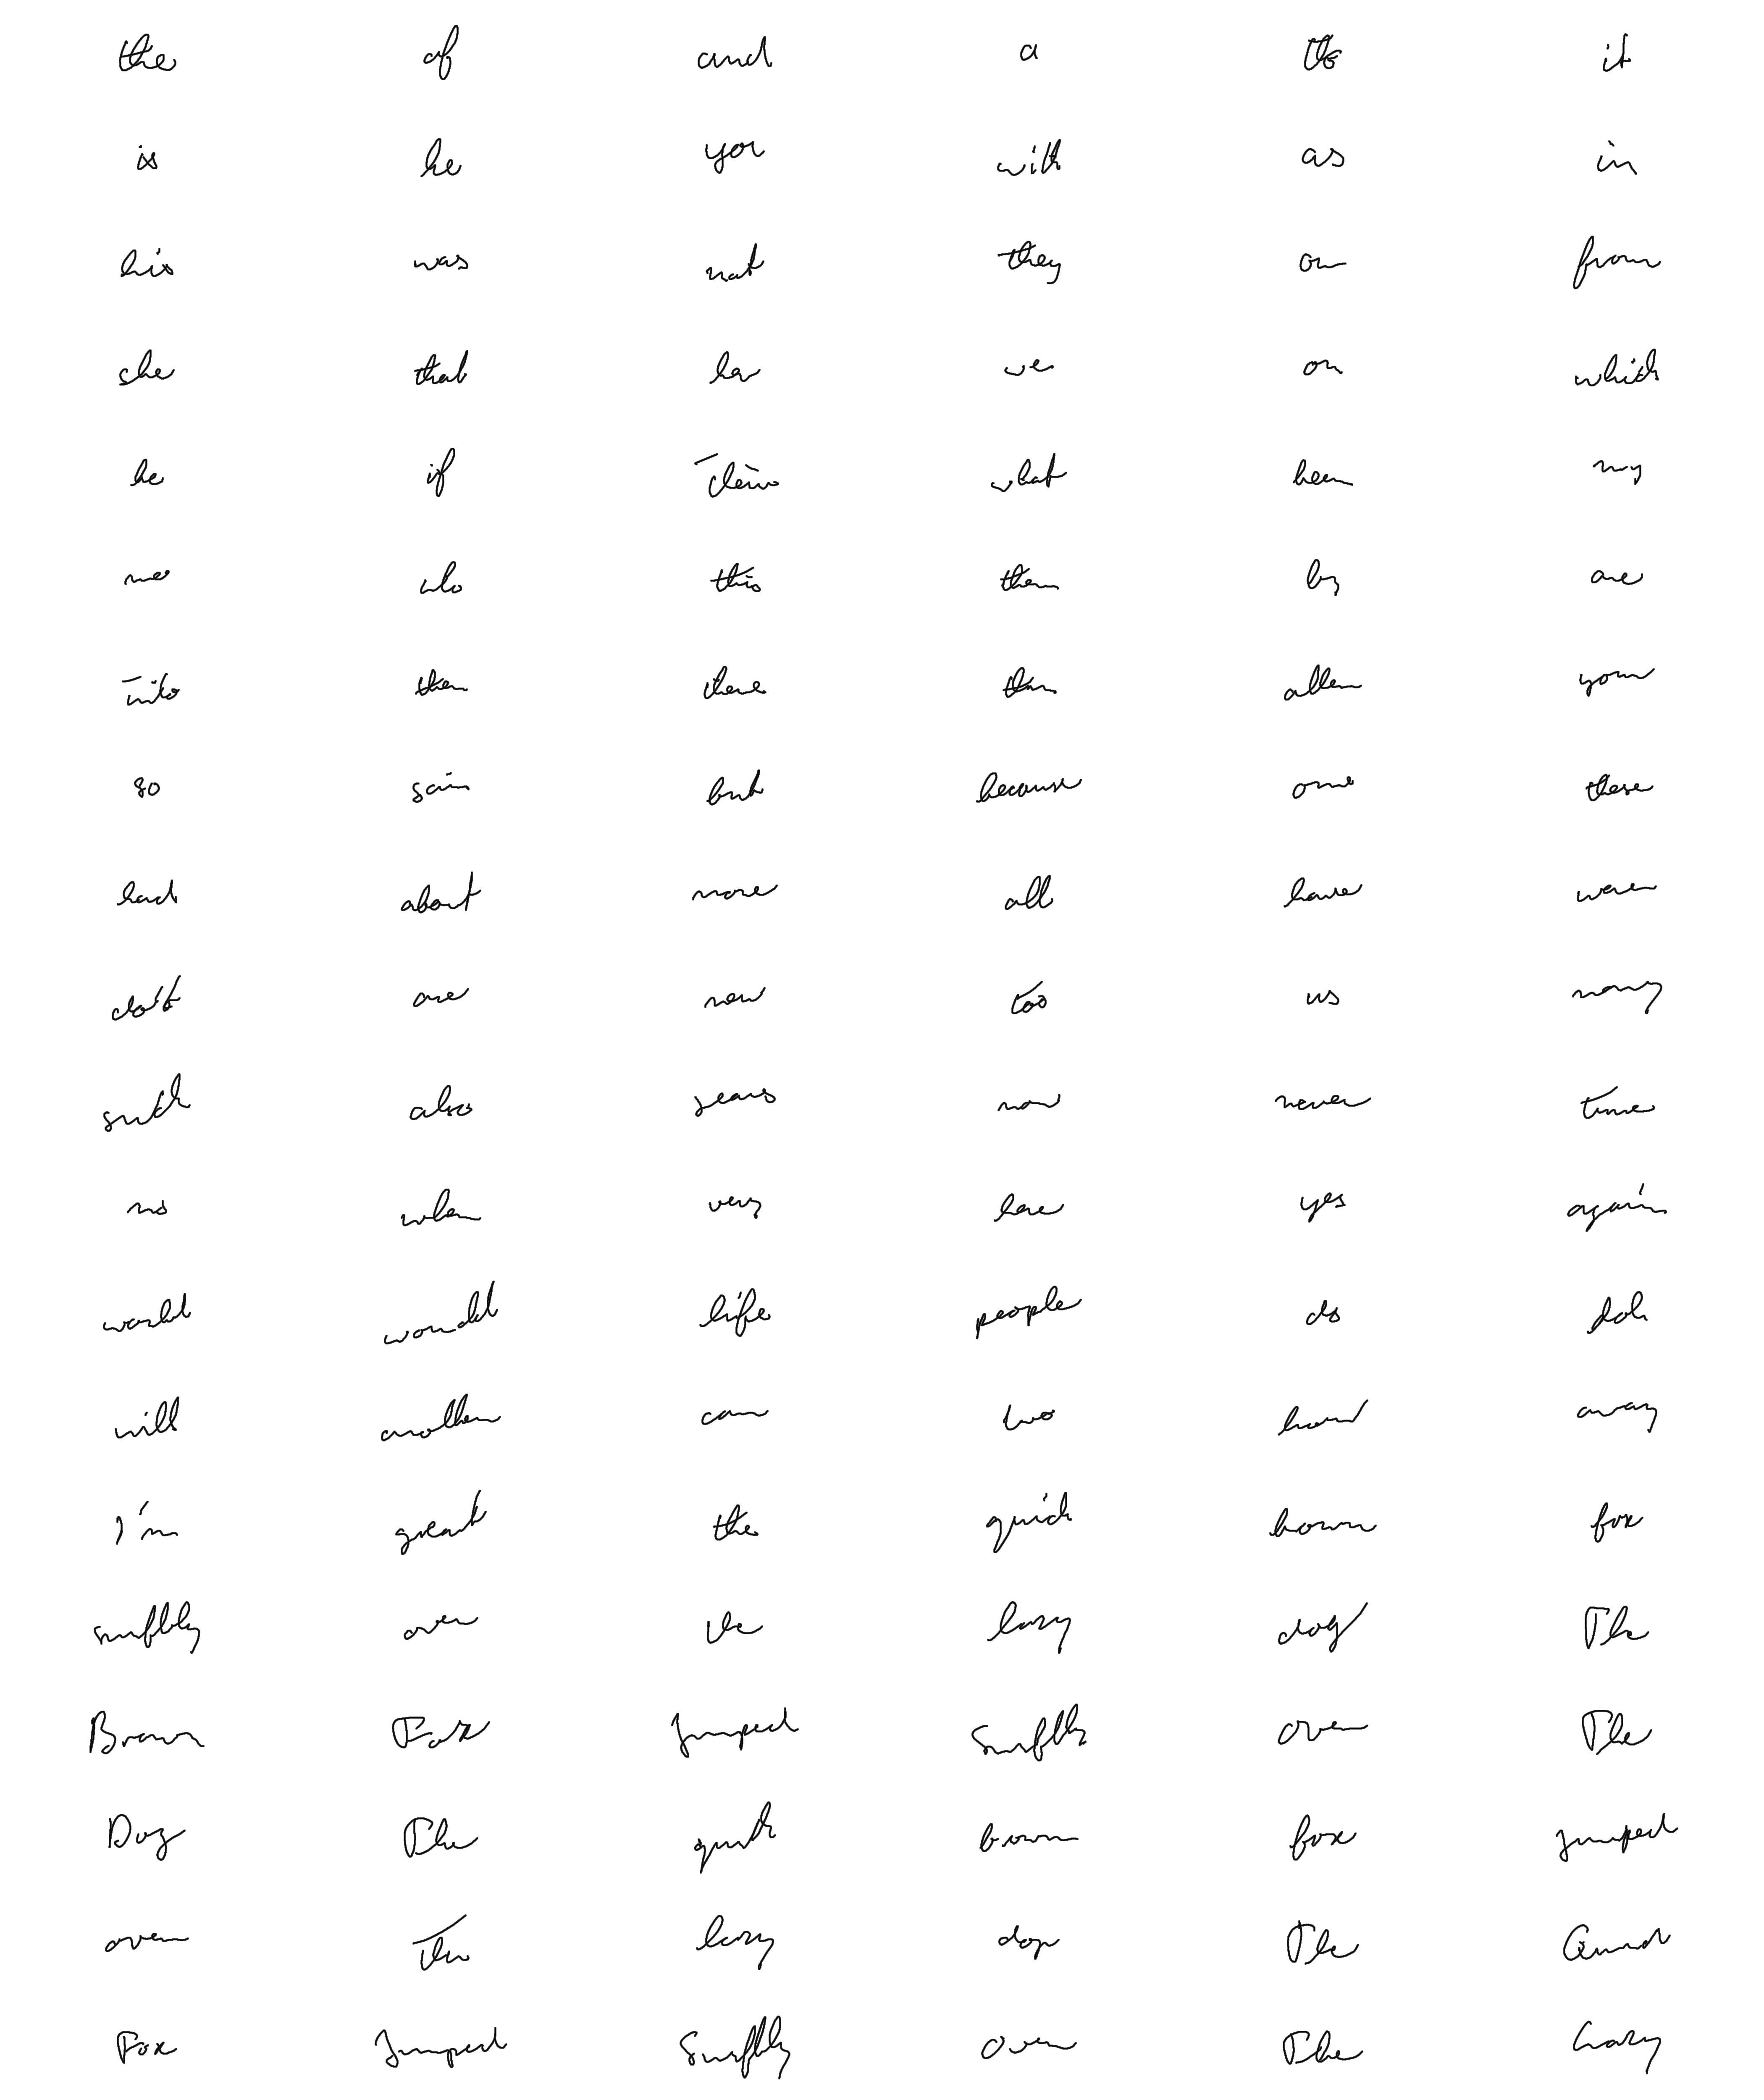 the of and a to it
is he you with as in
his was not they on from
she that her we or which
be if their what been my
me who this them by are
into then there than allen your
so said but because one these
had about more all have were
don't are new too us many
such also years now never time
no when very here yes again
world would life people do
will another can two how away
I'm great the quick brown fox
swiftly over the lazy dog The
Brown Fox Jumped Swiftly Over The
Dog The quick brown fox jumped
over The lazy dog The Quick
Fox Jumped Swiftly Over The Lazy